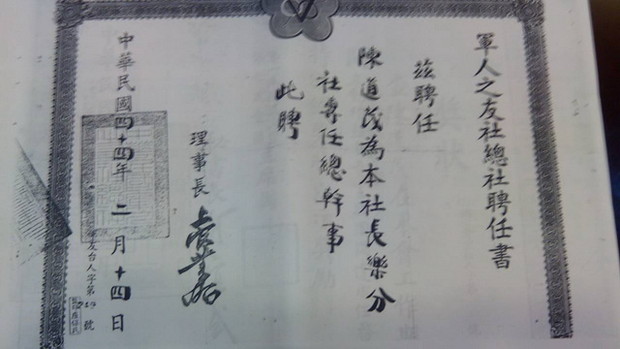 軍人之友社總社聘任書
茲聘任
陳道茂為本社長樂分
社專任總幹事
此聘
理事長
友台人字第 號
中華民國四十四年二月十四日